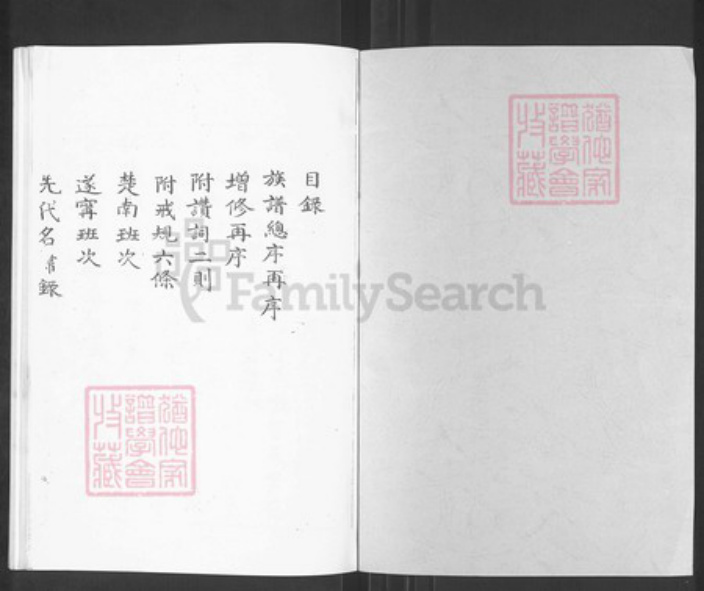 目錄
族譜總序再序
增修再序
附讚詞二則
附戒規六條
楚南班次
遂寧班次
先代名 錄
FamilySearch
家譜學會
藏
家譜學會
藏